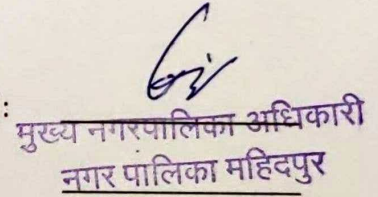 :
मुख्य नगरपालिका अधिकारी
नगर पालिका महिदपुर